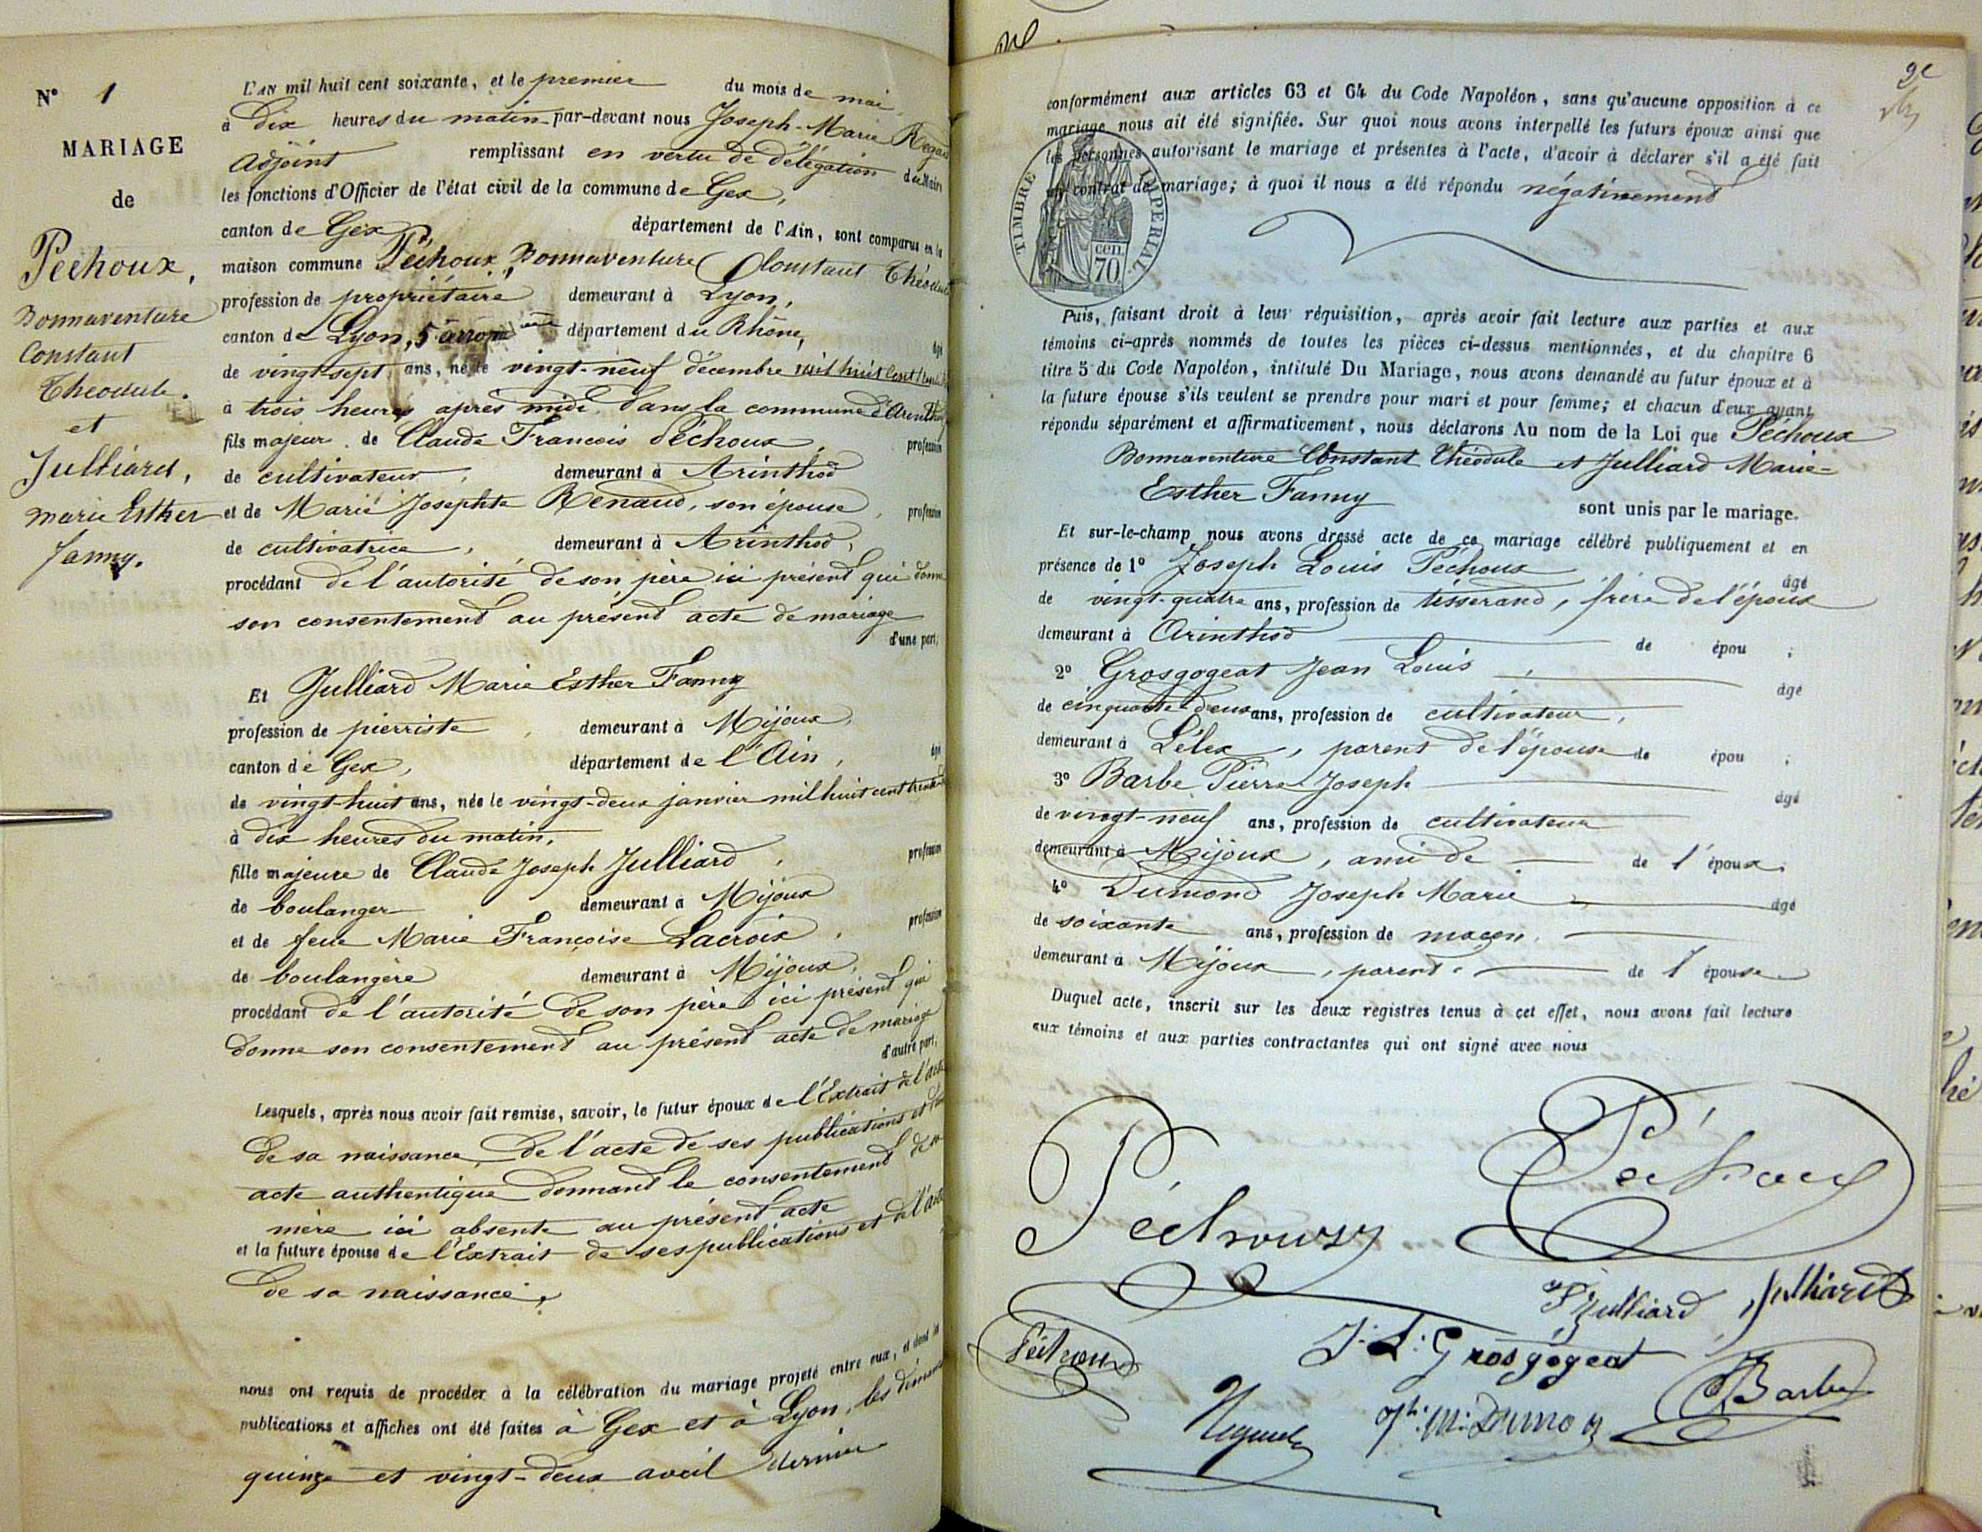 N° 1
MARIAGE
de
Péchoux,
Bonnaventure
Constant
Théodule.
et
Julliard,
Marie Esther
Fanny.
L'AN mil huit cent soixante, et le premier du mois de mai
à dix heures du matin par-devant nous Joseph-Marie
Adjoint remplissant en vertu de délégation du Maire
les fonctions d'Officier de l'état civil de la commune de Gex,
canton de Gex département de l'Ain, sont comparus en la
maison commune Péchoux, Bonnaventure Constant Théodule
profession de propriétaire demeurant à Lyon,
canton de Lyon, 5e arrondt département du Rhône, âgé
de vingt-sept ans, né le vingt-neuf décembre mil huit cent
à trois heures après midi, dans la commune d'Arinthod
fils majeur de Claude François Péchoux, profession
de cultivateur, demeurant à Arinthod
et de Marie Josephte Renaud, son épouse, profession
de cultivatrice, demeurant à Arinthod,
procédant de l'autorité de son père ici présent qui donne
son consentement au présent acte de mariage
d'une part;
Et Julliard Marie Esther Fanny
profession de pierriste, demeurant à Mijoux,
canton de Gex, département de l'Ain, âgé
de vingt-huit ans, née le vingt-deux janvier mil huit cent
à dix heures du matin,
fille majeure de Claude Joseph Julliard, profession
de boulanger demeurant à Mijoux
et de feue Marie Françoise Lacroix, profession
de boulangère demeurant à Mijoux,
procédant de l'autorité de son père ici présent qui
donne son consentement au présent acte de mariage
d'autre part;
Lesquels, après nous avoir fait remise, savoir, le futur époux de l'Extrait de l'acte
de sa naissance, de l'acte de ses publications et d'un
acte authentique donnant le consentement de sa
mère ici absente au présent acte
et la future épouse de l'Extrait de ses publications et de l'acte
de sa naissance,
nous ont requis de procéder à la célébration du mariage projeté entre eux, et dont les
publications et affiches ont été faites à Gex et à Lyon, les dimanches
quinze et vingt-deux avril dernier
2e
conformément aux articles 63 et 64 du Code Napoléon, sans qu'aucune opposition à ce
mariage nous ait été signifiée. Sur quoi nous avons interpellé les futurs époux ainsi que
les personnes autorisant le mariage et présentes à l'acte, d'avoir à déclarer s'il a été fait
un contrat de mariage; à quoi il nous a été répondu négativement
TIMBRE IMPERIAL.
cen.
70
Puis, faisant droit à leur réquisition, après avoir fait lecture aux parties et aux
témoins ci-après nommés de toutes les pièces ci-dessus mentionnées, et du chapitre 6
titre 5 du Code Napoléon, intitulé Du Mariage, nous avons demandé au futur époux et à
la future épouse s'ils veulent se prendre pour mari et pour femme; et chacun d'eux ayant
répondu séparément et affirmativement, nous déclarons Au nom de la Loi que Péchoux
Bonnaventure Constant Théodule et Julliard Marie-
Esther Fanny
sont unis par le mariage.
Et sur-le-champ nous avons dressé acte de ce mariage célébré publiquement et en
présence de 1° Joseph Louis Péchoux âgé
de vingt-quatre ans, profession de tisserand, frère de l'époux
demeurant à Arinthod de épou ;
2° Grosgogeat Jean Louis, âgé
de cinquante-deux ans, profession de cultivateur,
demeurant à Lélex, parent de l'épouse de épou ;
3° Barbe Pierre Joseph âgé
de vingt-neuf ans, profession de cultivateur
demeurant à Mijoux, ami de de l'époux.
4° Dumond Joseph Marie âgé
de soixante ans, profession de maçon,
demeurant à Mijoux, parent de l'épouse
Duquel acte, inscrit sur les deux registres tenus à cet effet, nous avons fait lecture
aux témoins et aux parties contractantes qui ont signé avec nous
Péchoux
Péchoux
F Julliard Julliard
Péchoux
J. L. Grosgogeat
Barbe
Jh. M. Dumon